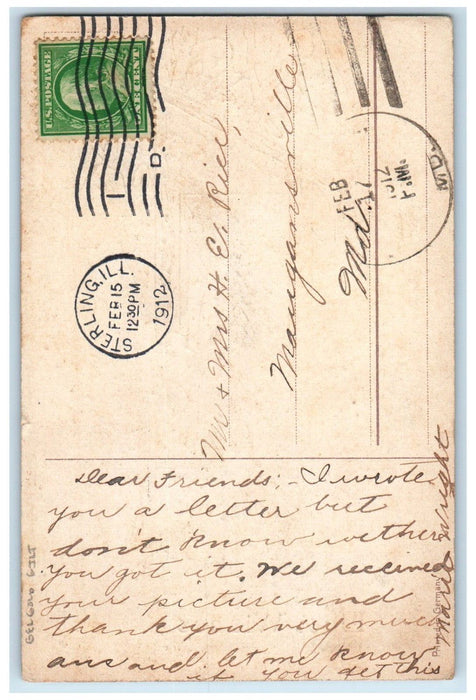 U.S. POSTAGE
STERLING, ILL.
FEB 15
12 30 PM
1912
D.
1
FEB
17
1912
P.M.
MD.
Mr & Mrs H. E. Rice,
Maugansville
Md.
Dear Friends; - I wrote
you a letter but
don't know wethere
you got it. We received
your picture and
thank you very much
ans and let me know
if you get this
Wright
Germany